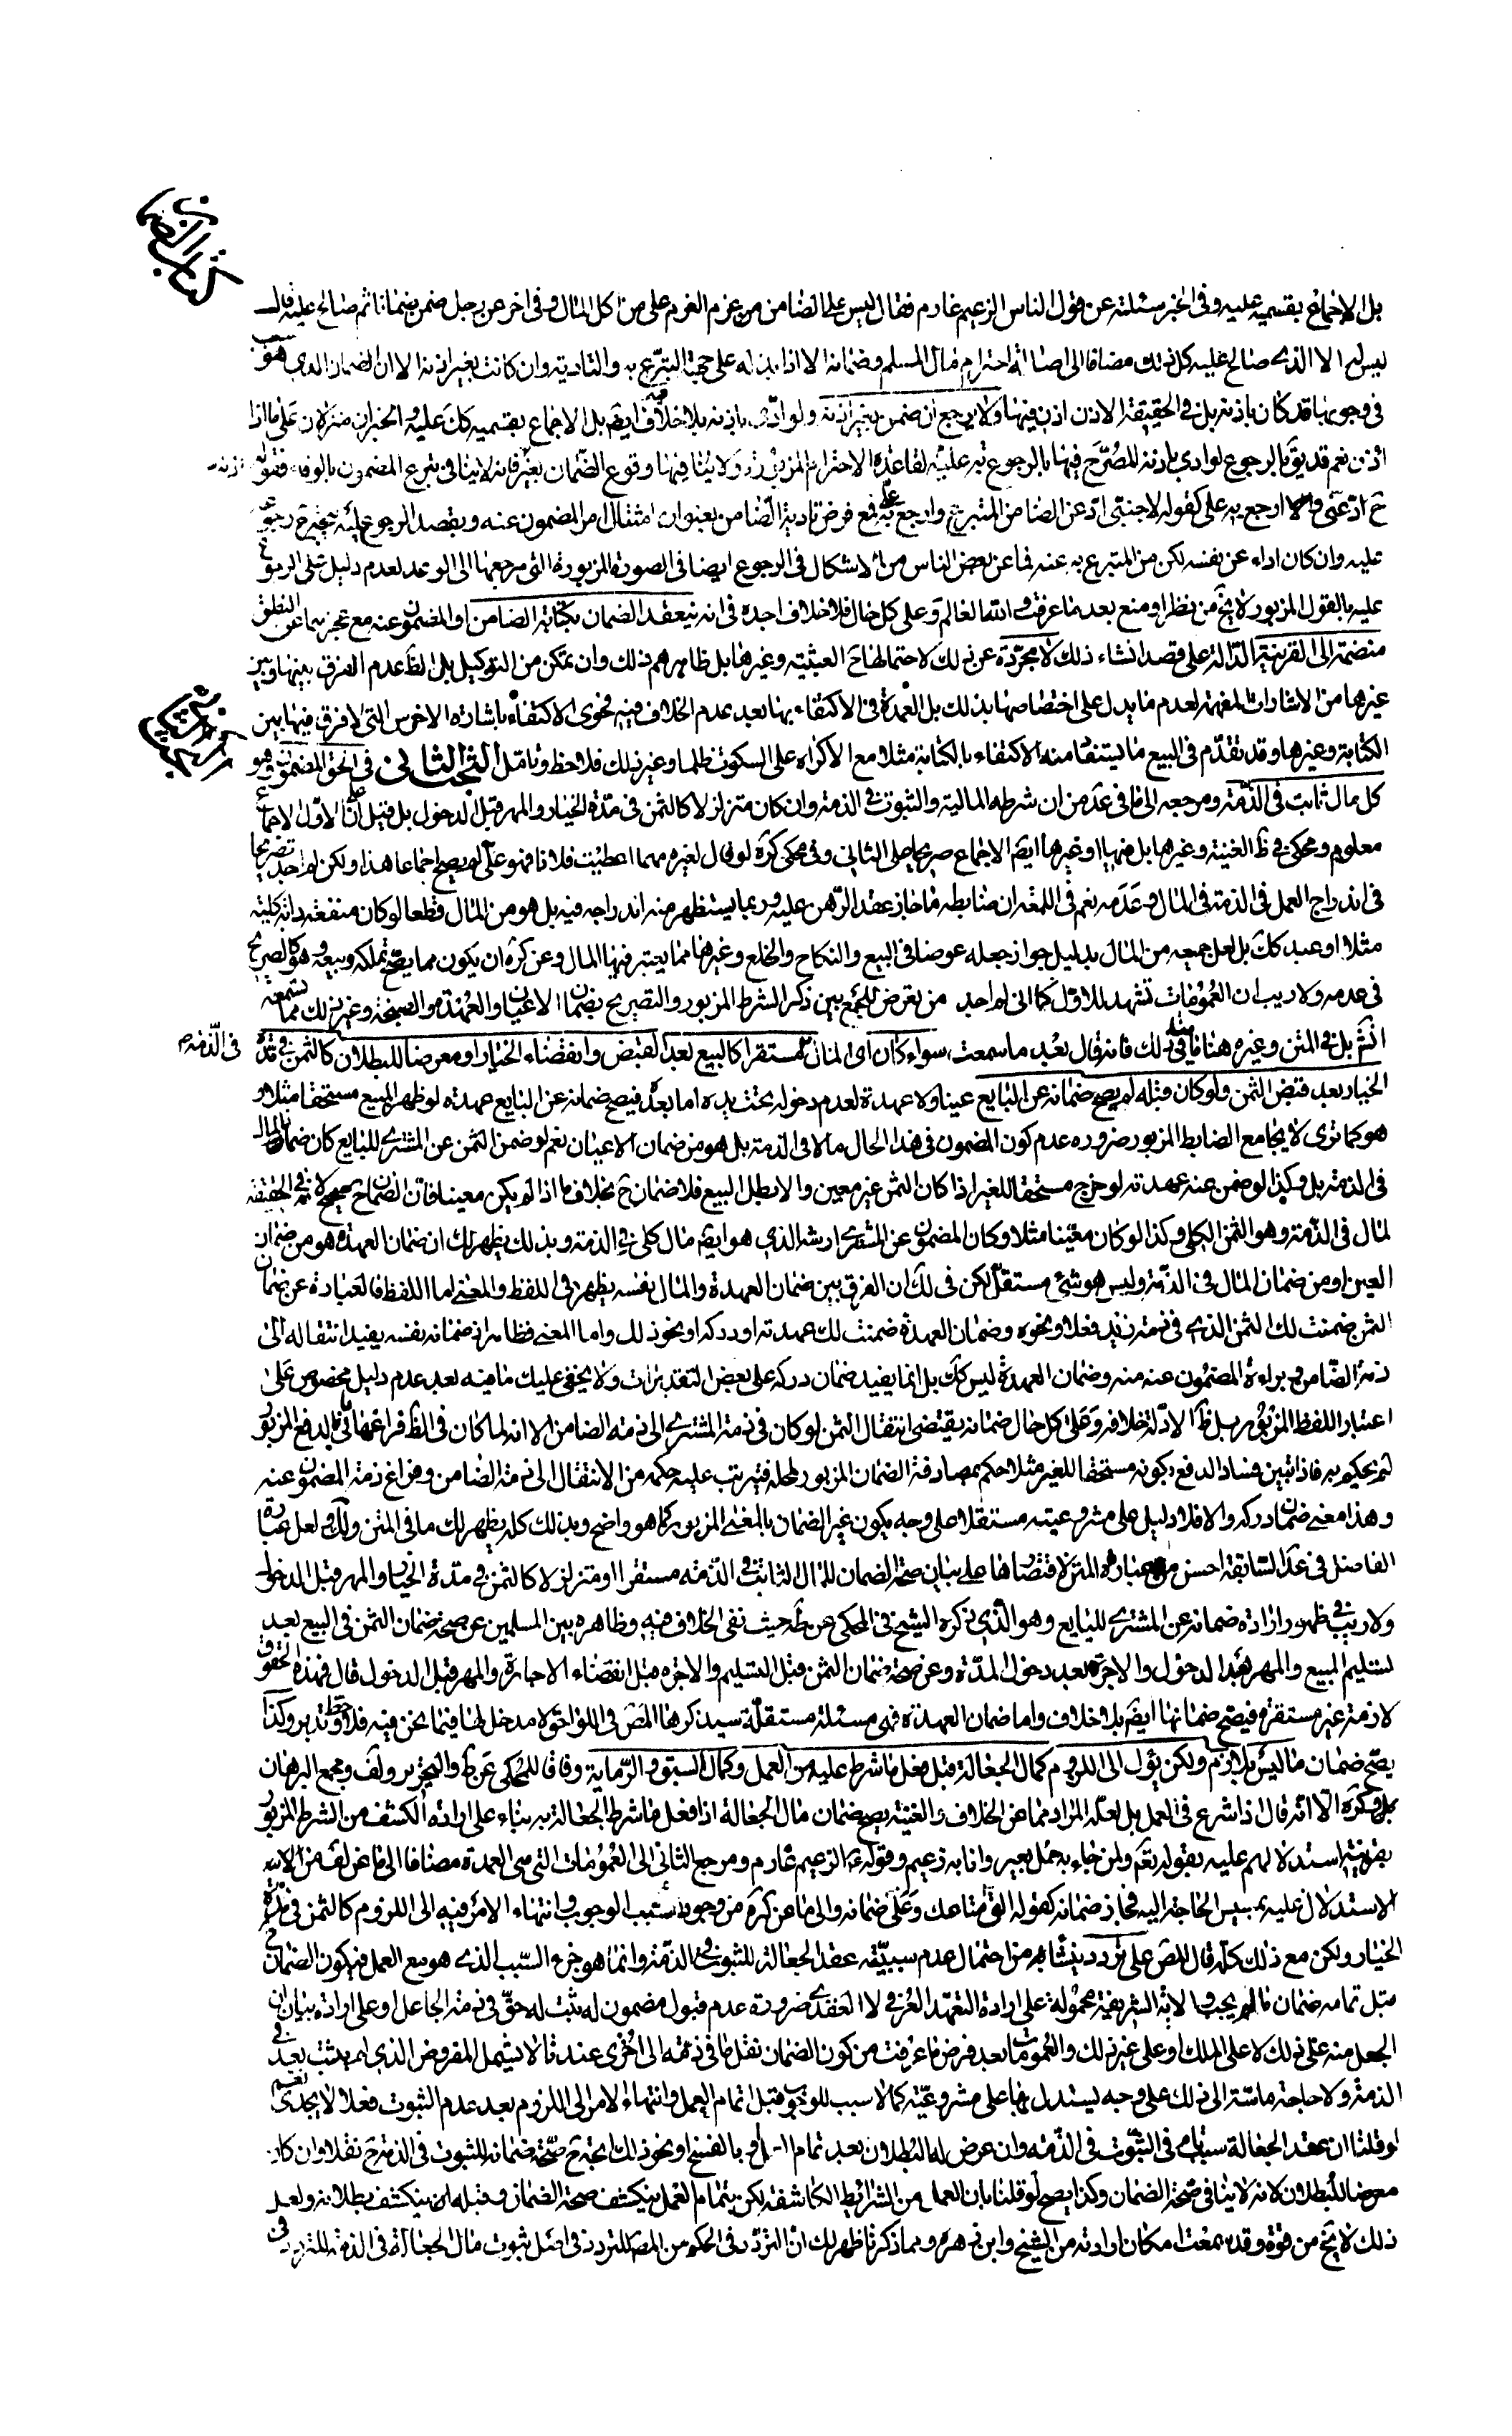 كتاب الضمان
بل الاجماع بقسميه عليه وفى الخبر مسئلته عن قول الناس الزعيم غارم فقال ليس على الضامن من غرم الغرم على من اكل المال وفى اخر عن رجل ضمن ضمانا ثم صالح عليه قال
ليس له الا الذى صالح عليه كل ذلك مضافا الى اصالة احترام مال المسلم وضمانه الا اذا بذله على جهة التبرع به والتادية وان كانت بغير اذنه الا ان الضمان الذى هو سبب
فى وجوبها قد كان باذنه بل فى الحقيقة الاذن اذن فيها ولا يرجع ان ضمن بغير اذنه ولو ادى باذنه بلا خلاف فيه ايضا بل الاجماع بقسميه كك عليه والخبران منزلان على ما اذا
اذن نعم قد يق بالرجوع لو ادى باذنه المصرح فيها بالرجوع به عليه لقاعدة الاحترام المزبورة ولا ينافيها وقوع الضمان بغير فانه لا ينافى تبرع المضمون بالوفاء فقوله
ح اد عنى ارجع به على كقوله لاجنبى اد عن الضامن المتبرع وارجع به على نعم فرض تادية الضامن بعنوان امتثال امر المضمون عنه وبقصد الرجوع عليه يتجه ح رجوعه
عليه وان كان اداء عن نفسه لكن من المتبرع به عنه فما عن بعض الناس من الاشكال فى الرجوع ايضا فى الصورة المزبورة التى مرجعها الى الوعد لعدم دليل على الرجوع
عليه بالقول المزبور لا يخ من نظر او منع بعد ما عرفت والله العالم وعلى كل حال فلا خلاف اجده فى انه ينعقد الضمان بكتابة الضامن او المضمون عنه مع عجزهما عن النطق
منضمة الى القرينة الدالة على قصد انشاء ذلك لا مجردة عن ذلك لاحتمالها ح العبثية وغيرها بل ظاهرهم ذلك وان تمكن من التوكيل بل الظ عدم الفرق بينها وبين
غيرها من الاشارات المفهمة لعدم ما يدل على اختصاصها بذلك بل العمدة فى الاكتفاء بها بعد عدم الخلاف فيه فحوى الاكتفاء باشارة الاخرس التى لا فرق فيها بين
الكتابة وغيرها وقد تقدم فى البيع ما يستفاد منه الاكتفاء بالكتابة مثلا مع الاكراه على السكوت ظلما وغير ذلك فلاحظ وتامل البحث الثانى فى الحق المضمون وهو
كل مال ثابت فى الذمة ومرجعه الى ما فى عد من ان شرطه المالية والثبوت فى الذمة وان كان متزلزلا كالثمن فى مدة الخيار والمهر قبل الدخول بل قيل ان على الاول الاجماع
معلوم ومحكى فى ظ الغنية وغيرها بل فيها او غيرها ايضا الاجماع صريحا على الثانى وفى محكى كرة لو قال لغيره مهما اعطيت فلانا فهو على لم يصح اجماعا هذا ولكن لم اجد تصريحا
فى اندراج العمل فى الذمة فى المال وعدمه نعم فى اللمعة ان ضابطه ما جاز عقد الرهن عليه وربما يستظهر منه اندراجه فيه بل هو من المال قطعا لو كان منفعة دابة كلية
مثلا او عبد كك بل لعل جميعه من المال بدليل جواز جعله عوضا فى البيع والنكاح والخلع وغيرها مما يعتبر فيها المال وعن كرة ان يكون مما يصح تملكه وبيعه وهو كالصريح
فى عدمه ولا ريب ان العمومات تشهد للاول كما انى لم اجد من تعرض للجمع بين ذكر الشرط المزبور والتصريح بضمان الاعيان والعهدة والصنجة وغير ذلك مما تسمعه
انش بل فى المتن وغيره هنا ما ينافى ذلك فانه قال بعد ما سمعت سواء كان اى المال مستقرا كالبيع بعد القبض وانقضاء الخيار او معرضا للبطلان كالثمن فى مدة
الخيار بعد قبض الثمن ولو كان قبله لم يصح ضمانه عن البايع عينا ولا عهدة لعدم دخوله تحت يده اما بعده فيصح ضمانه عن البايع عهدته لو ظهر المبيع مستحقا مثلا و
هو كما ترى لا يجامع الضابط المزبور ضرورة عدم كون المضمون فى هذا الحال مالا فى الذمة بل هو من ضمان الاعيان نعم لو ضمن الثمن عن المشترى للبايع كان ضمانا لمال
فى الذمة بل وكذا لو ضمن عنه عهدته لو خرج مستحقا للغير اذا كان الثمن غير معين والا بطل البيع فلا ضمان ح بخلاف ما اذا لم يكن معينا فان الضمان ح صحيح لانه فى الحقيقة
لمال فى الذمة وهو الثمن الكلى وكذا لو كان معينا مثلا وكان المضمون عن المشترى ارشه الذى هو ايضا مال كلى فى الذمة وبذلك يظهر لك ان ضمان العهدة هو من ضمان
العين او من ضمان المال فى الذمة وليس هو شئ مستقل لكن فى لك ان الفرق بين ضمان العهدة والمال نفسه يظهر فى اللفظ والمعنى اما اللفظ فالعبارة عن ضمان
الثمن ضمنت لك الثمن الذى فى ذمة زيد فعلا ونحوه وضمان العهدة ضمنت لك عهدته او دركه او نحو ذلك واما المعنى فظاهر اذ ضمانه نفسه يفيد انتقاله الى
ذمة الضامن وبراءة المضمون عنه منه وضمان العهدة ليس كك بل انما يفيد ضمان دركه على بعض التقديرات ولا يخفى عليك ما فيه بعد عدم دليل مخصوص على
اعتبار اللفظ المزبور بل ظ الادلة خلافه وعلى كل حال ضمانه يقتضى انتقال الثمن لو كان فى ذمة المشترى الى ذمة الضامن الا انه لما كان فى الظ فراغها بالدفع المزبور
لم نحكم به فاذا تبين فساد الدفع بكونه مستحقا للغير مثلا حكم بمصادفة الضمان المزبور لمحله فيترتب عليه حكمه من الانتقال الى ذمة الضامن وفراغ ذمة المضمون عنه
وهذا معنى ضمان دركه والا فلا دليل على مشروعيته مستقلا على وجه يكون غير الضمان بالمعنى المزبور كما هو واضح وبذلك كله يظهر لك ما فى المتن ولك ولعل عبارة
الفاضل فى عد السابقة احسن من عبارة المتن لاقتصارها على بيان صحة الضمان للمال الثابت فى الذمة مستقرا او متزلزلا كالثمن فى مدة الخيار والمهر قبل الدخول
ولا ريب فى ظهور ارادة ضمانه عن المشترى للبايع وهو الذى ذكره الشيخ فى المحكى عن ط حيث نفى الخلاف فيه وظاهره بين المسلمين عن صحة ضمان الثمن فى البيع بعد
تسليم المبيع والمهر بعد الدخول والاجرة بعد دخول المدة وعن صحة ضمان الثمن قبل التسليم والاجرة قبل انقضاء الاجارة والمهر قبل الدخول قال فهذه الحقوق
لازمة غير مستقرة فيصح ضمانها ايضا بلا خلاف واما ضمان العهدة فهى مسئلة مستقلة سيذكرها المص فى اللواحق ولا مدخل لها فيما نحن فيه فلاحظ وتدبر وكذا
يصح ضمان ما ليس بلازم ولكن يؤل الى اللزوم كمال الجعالة قبل فعل ما شرط عليه من العمل وكمال السبق والرماية وفاقا للمحكى عن ط والتحرير ولف ومجمع البرهان
بل وكرة الا انه قال اذا شرع فى العمل بل لعله المراد مما عن الخلاف والغنية يصح ضمان مال الجعالة اذا فعل ما شرط الجعالة به بناء على ارادة الكشف من الشرط المزبور
بقرينة استدلالهم عليه بقوله تعم ولمن جاء به حمل بعير وانا به زعيم وقوله ع الزعيم غارم ومرجع الثانى الى العمومات التى هى العمدة مضافا الى ما عن لف من الاية
الاستدلال عليه بمسيس الحاجة اليه فجاز ضمانه كقوله الق متاعك وعلى ضمانه والى ما عن كرة من وجود سبب الوجوب وانتهاء الامر فيه الى اللزوم كالثمن فى مدة
الخيار ولكن مع ذلك كله قال المص على تردد ينشا من احتمال عدم سببية عقد الجعالة للثبوت فى الذمة وانما هو جزء السبب الذى هو مع العمل فيكون الضمان ح
قبل تمامه ضمان ما لم يجب والاية الشريفة محمولة على ارادة التعهد العرفى لا العقدى ضرورة عدم قبول مضمون له ثبت له حق فى ذمة الجاعل او على ارادة بيان ان
الجعل منه على ذلك لا على الملك او على غير ذلك والعمومات بعد فرض ما عرفت من كون الضمان نقل ما فى ذمة الى اخرى عندنا لا يشمل المفروض الذى لم يثبت بعد فى
الذمة ولا حاجة ماسة الى ذلك على وجه يستدل بها على مشروعيته كما لا سبب للوجوب قبل تمام العمل وانتهاء الامر الى اللزوم بعد عدم الثبوت فعلا لا يجدى نعم
لو قلنا ان عقد الجعالة سبب تام فى الثبوت فى الذمة وان عرض له البطلان بعد تمام او بالفسخ او نحو ذلك اتجه ح صحة ضمانه للثبوت فى الذمة ح نقلا وان كان
معرضا للبطلان لانه لا ينافى صحة الضمان وكذا يصح لو قلنا بان العمل من الشرائط الكاشفة لكن بتمام العمل ينكشف صحة الضمان وقبله لم ينكشف بطلانه ولعل
ذلك لا يخ من قوة وقد سمعت امكان ارادته من الشيخ وابن زهرة ومما ذكرنا ظهر لك ان التردد فى الحكم من المص للتردد فى اصل ثبوت مال الجعالة فى الذمة للتردد فى